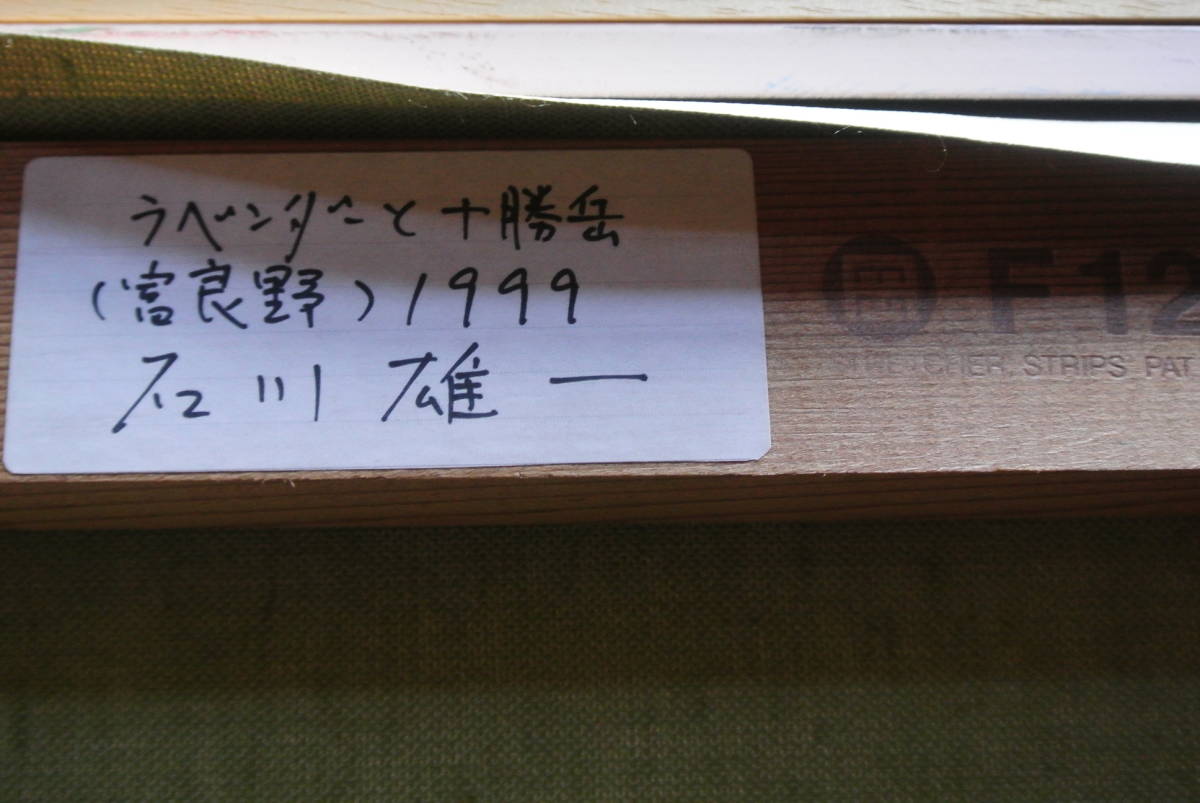 ラベンダーと十勝岳
(富良野)1999
石川 雄一
F12
STRETCHER, STRIPS PAT